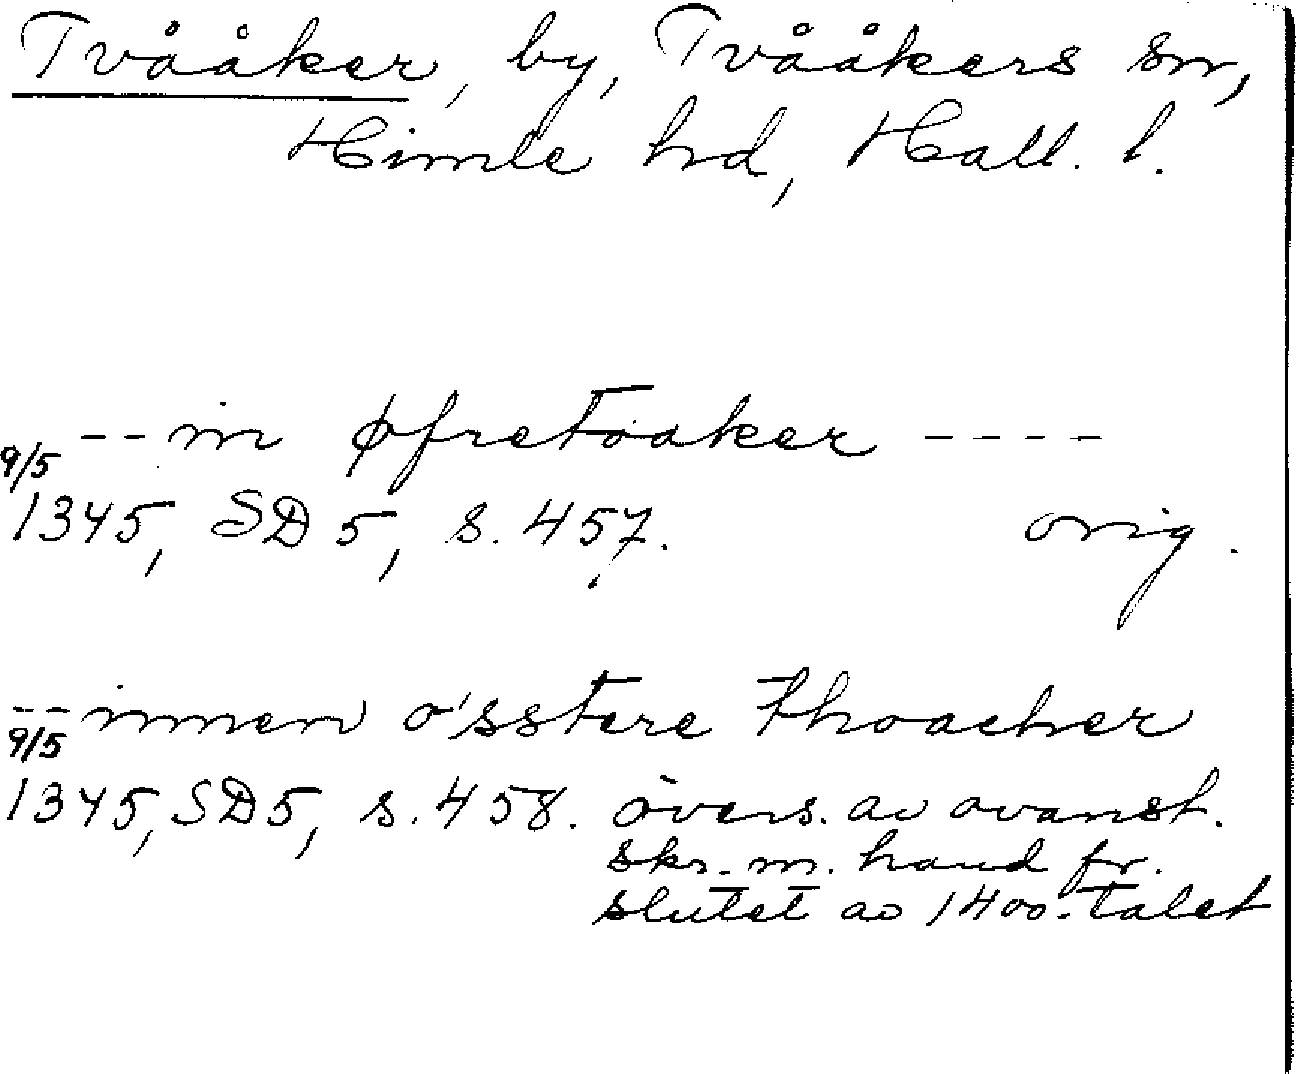 Tvååker, by, Tvååkers sn,
Himle hd, Hall. l.
-- in øfretoaker ----
9/5
1345, SD 5, s. 457. orig.
-- innen o'sstere thoacher
9/5
1345, SD 5, s. 458. övers. av ovanst.
skr. m. hand fr.
slutet av 1400-talet